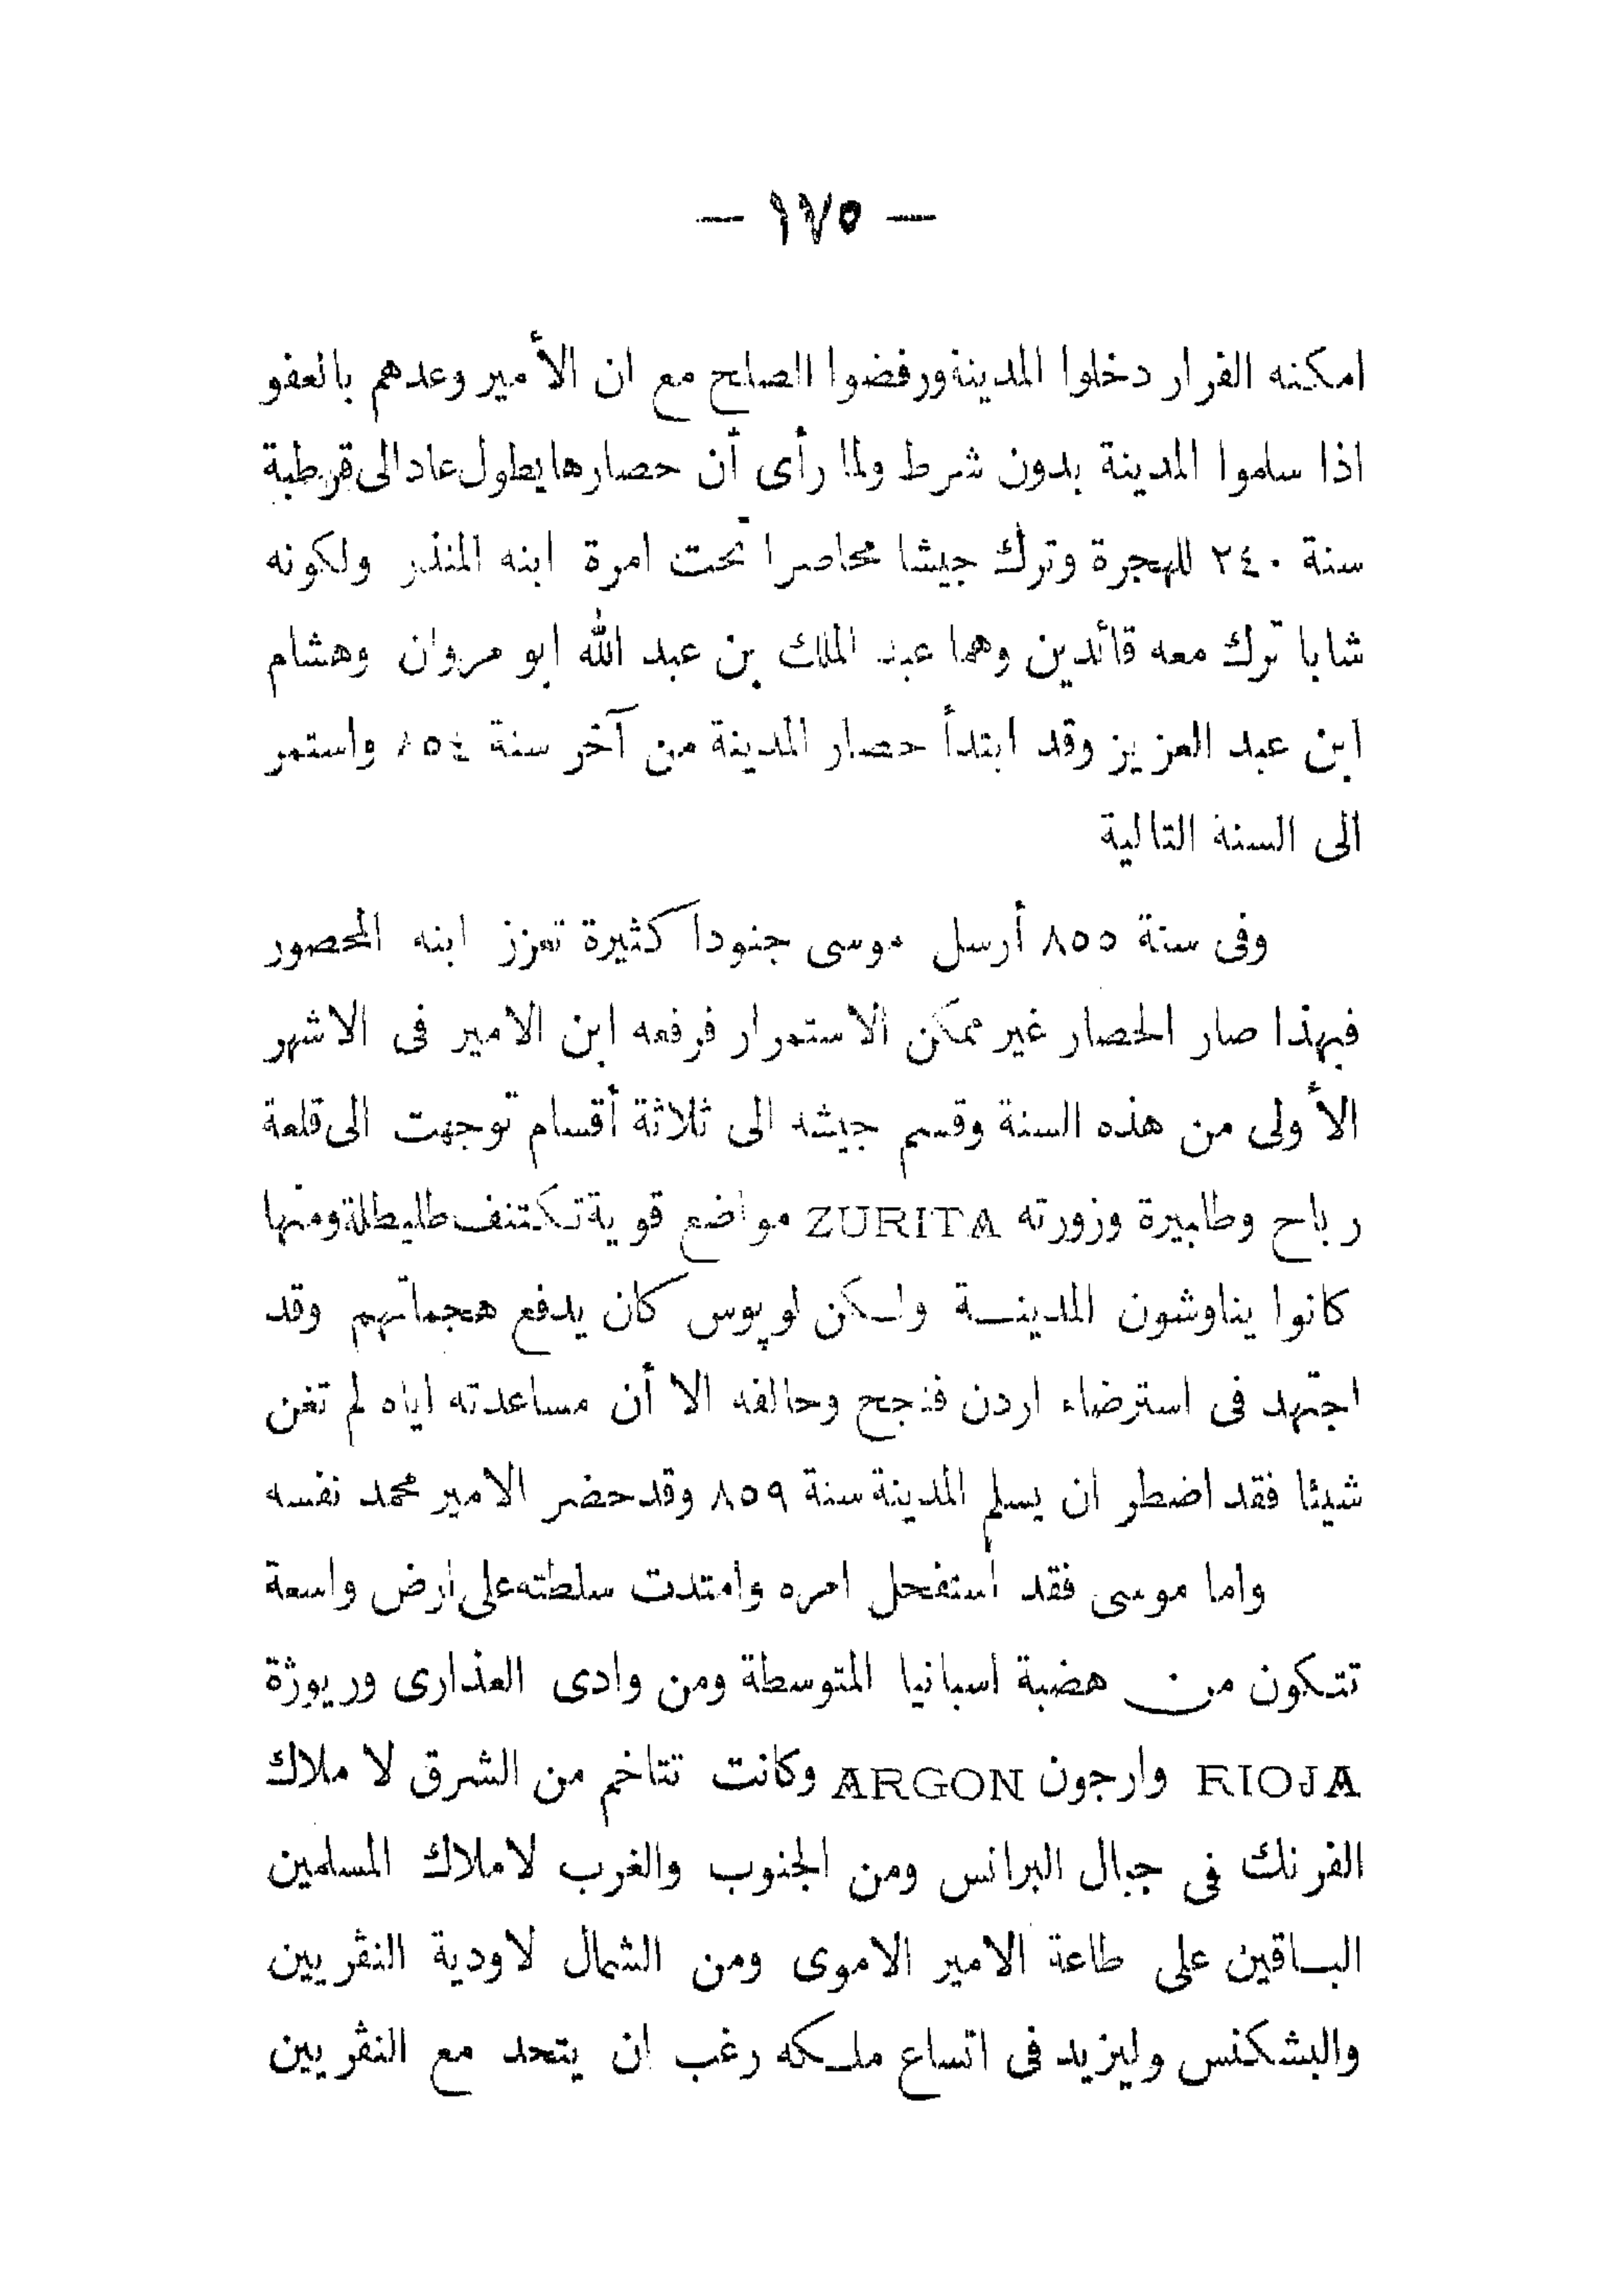 — ١٧٥ —
امكنه الفرار دخلوا المدينة ورفضوا الصلح مع ان الأمير وعدهم بالعفو
اذا سلموا المدينة بدون شرط ولما رأى أن حصارها يطول عاد الى قرطبة
سنة ٢٤٠ للهجرة وترك جيشا محاصرا تحت امرة ابنه المنذر ولكونه
شابا ترك معه قائدين وهما عبد الملك بن عبد الله ابو مروان وهشام
ابن عبد العزيز وقد ابتدأ حصار المدينة من آخر سنة ٨٥٤ واستمر
الى السنة التالية
وفى سنة ٨٥٥ أرسل موسى جنودا كثيرة تعزز ابنه المحصور
فبهذا صار الحصار غير ممكن الاستمرار فرفعه ابن الامير فى الاشهر
الأولى من هذه السنة وقسم جيشه الى ثلاثة أقسام توجهت الى قلعة
رباح وطلبيرة وزورته ZURITA مواضع قوية تكتنف طليطلة ومنها
كانوا يناوشون المدينــة ولـكن لوپوس كان يدفع هجماتهم وقد
اجتهد فى استرضاء اردن فنجح وحالفه الا أن مساعدته اياه لم تغن
شيئا فقد اضطر ان يسلم المدينة سنة ٨٥٩ وقد حضر الامير محمد نفسه
واما موسى فقد استفحل امره وامتدت سلطته على ارض واسعة
تتكون من هضبة اسبانيا المتوسطة ومن وادى العذارى وريوژة
RIOJA وارجون ARGON وكانت تتاخم من الشرق لا ملاك
الفرنك فى جبال البرانس ومن الجنوب والغرب لاملاك المسلمين
البـاقين على طاعة الامير الاموى ومن الشمال لاودية النڤريين
والبشكنس وليزيد فى اتساع ملـكه رغب ان يتحد مع النڤريين